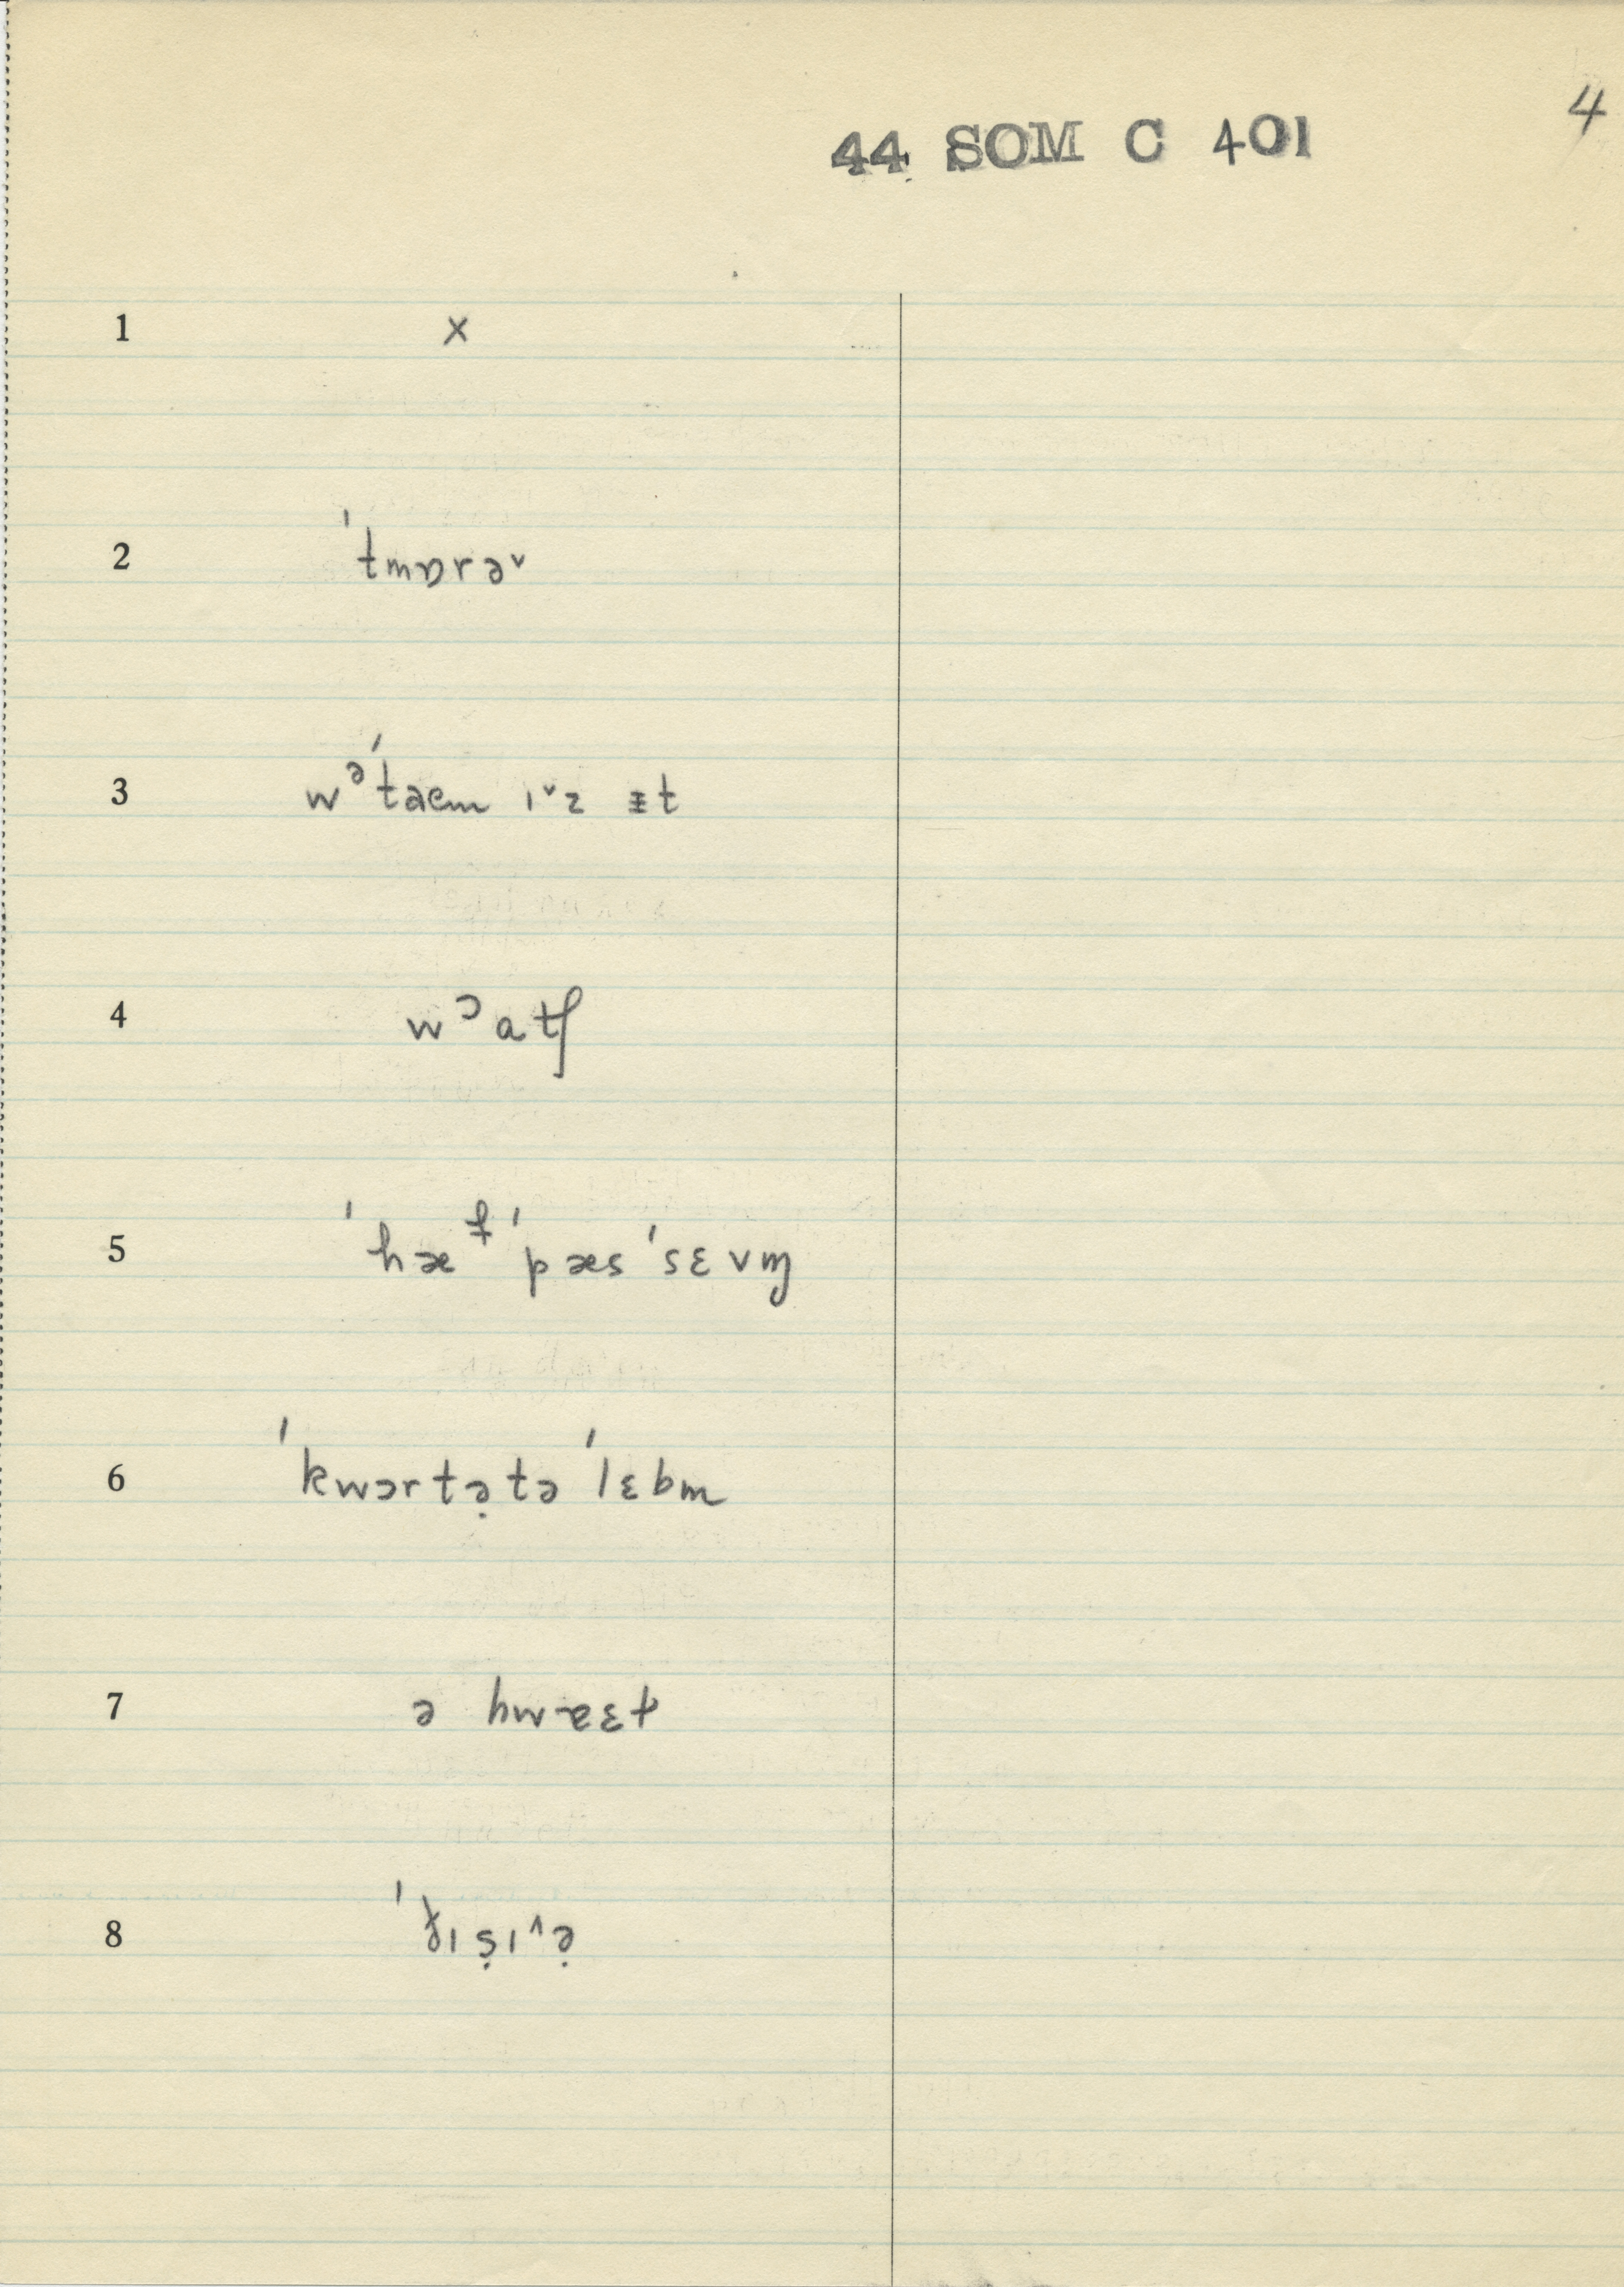 4
44 SOM C 401
1 x
2 ˈtmɒrəᵛ
3 wᵊˈtaem ɪᵛz ᵻt
4 wᵓatʃ
5 ˈhæᶠˈpæsˈsɛvɱ
6 ˈkwɔrtə̣təˈlɛbm
7 ə hwɐɛt
8 ˈɪṣɪ^ə̣